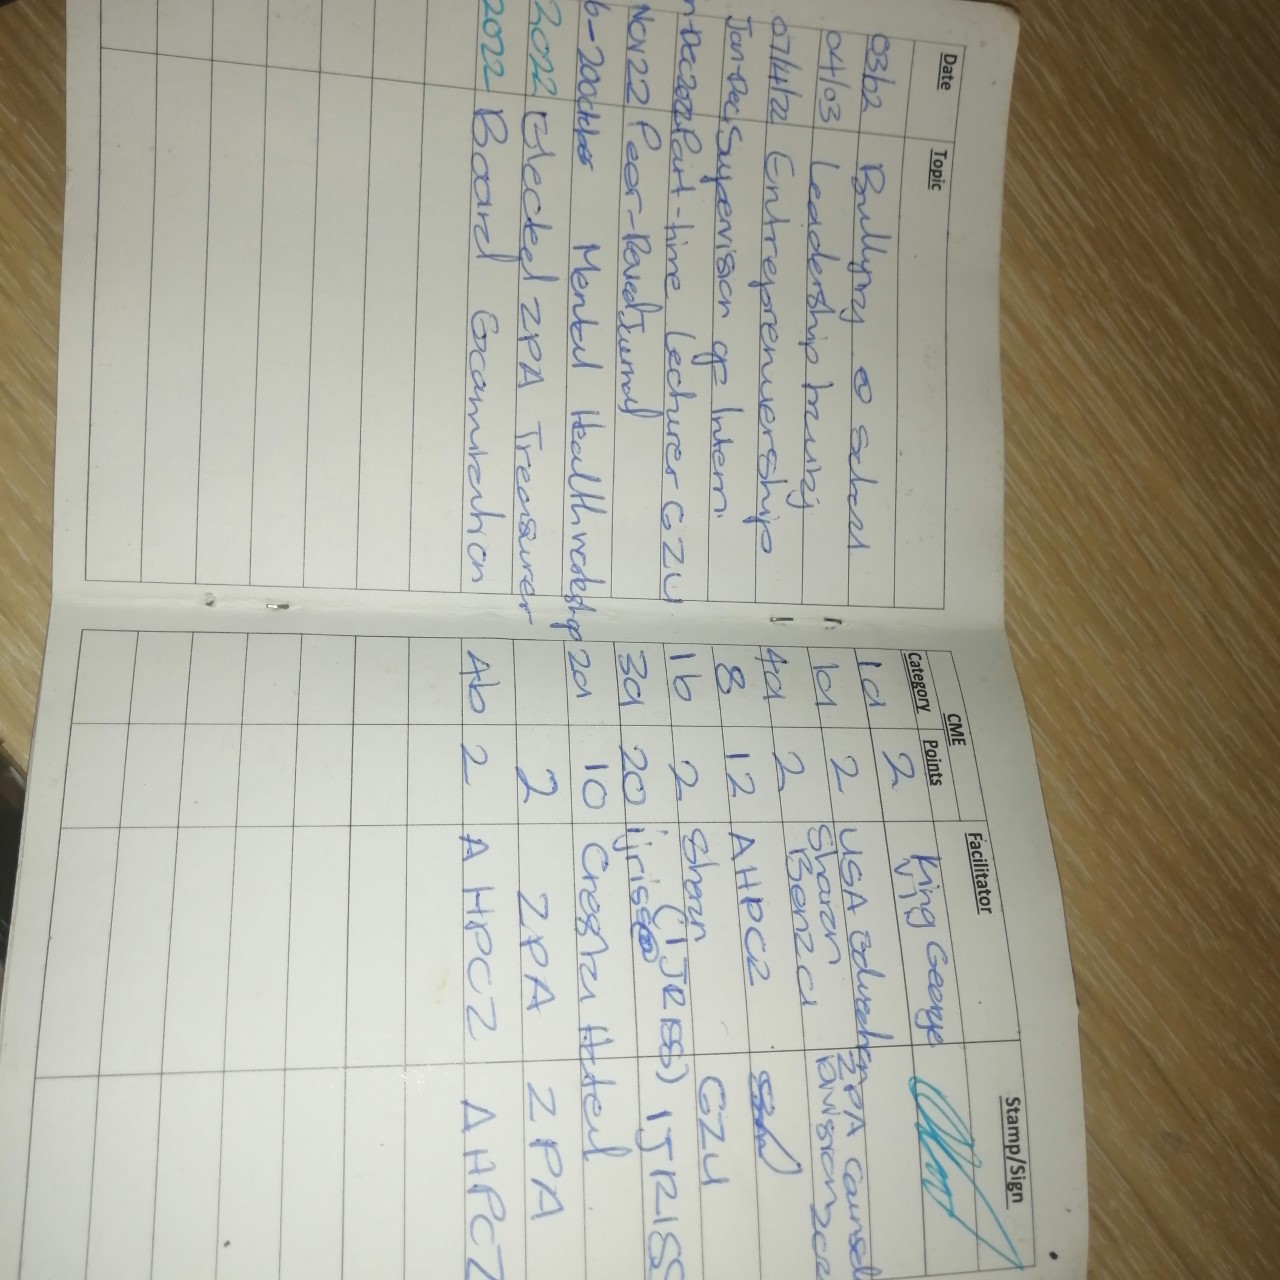 Date Topic CME Category Points Facilitator Stamp/Sign
03/12 Bullying @ school 1a 2 King George VI
04/03 Leadership training 1a 2 USA Education ZPA Counsel
07/4/22 Entreprenuership 4a 2 Sharon Bonzci Division
Jan-Dec Supervision of Intern. 8 12 AHPCZ
n-Dec2022 Part-time Lecturer GZU 1b 2 GZU
Nov 22 Peer-Reved Journal 3a 20 ijriss (IJRISS) IJRISS
Mental Health workshop 2a 10 Cresta Hotel
2022 Elected ZPA Treasurer 2 ZPA ZPA
2022 Board Examination 4b 2 AHPCZ AHPCZ